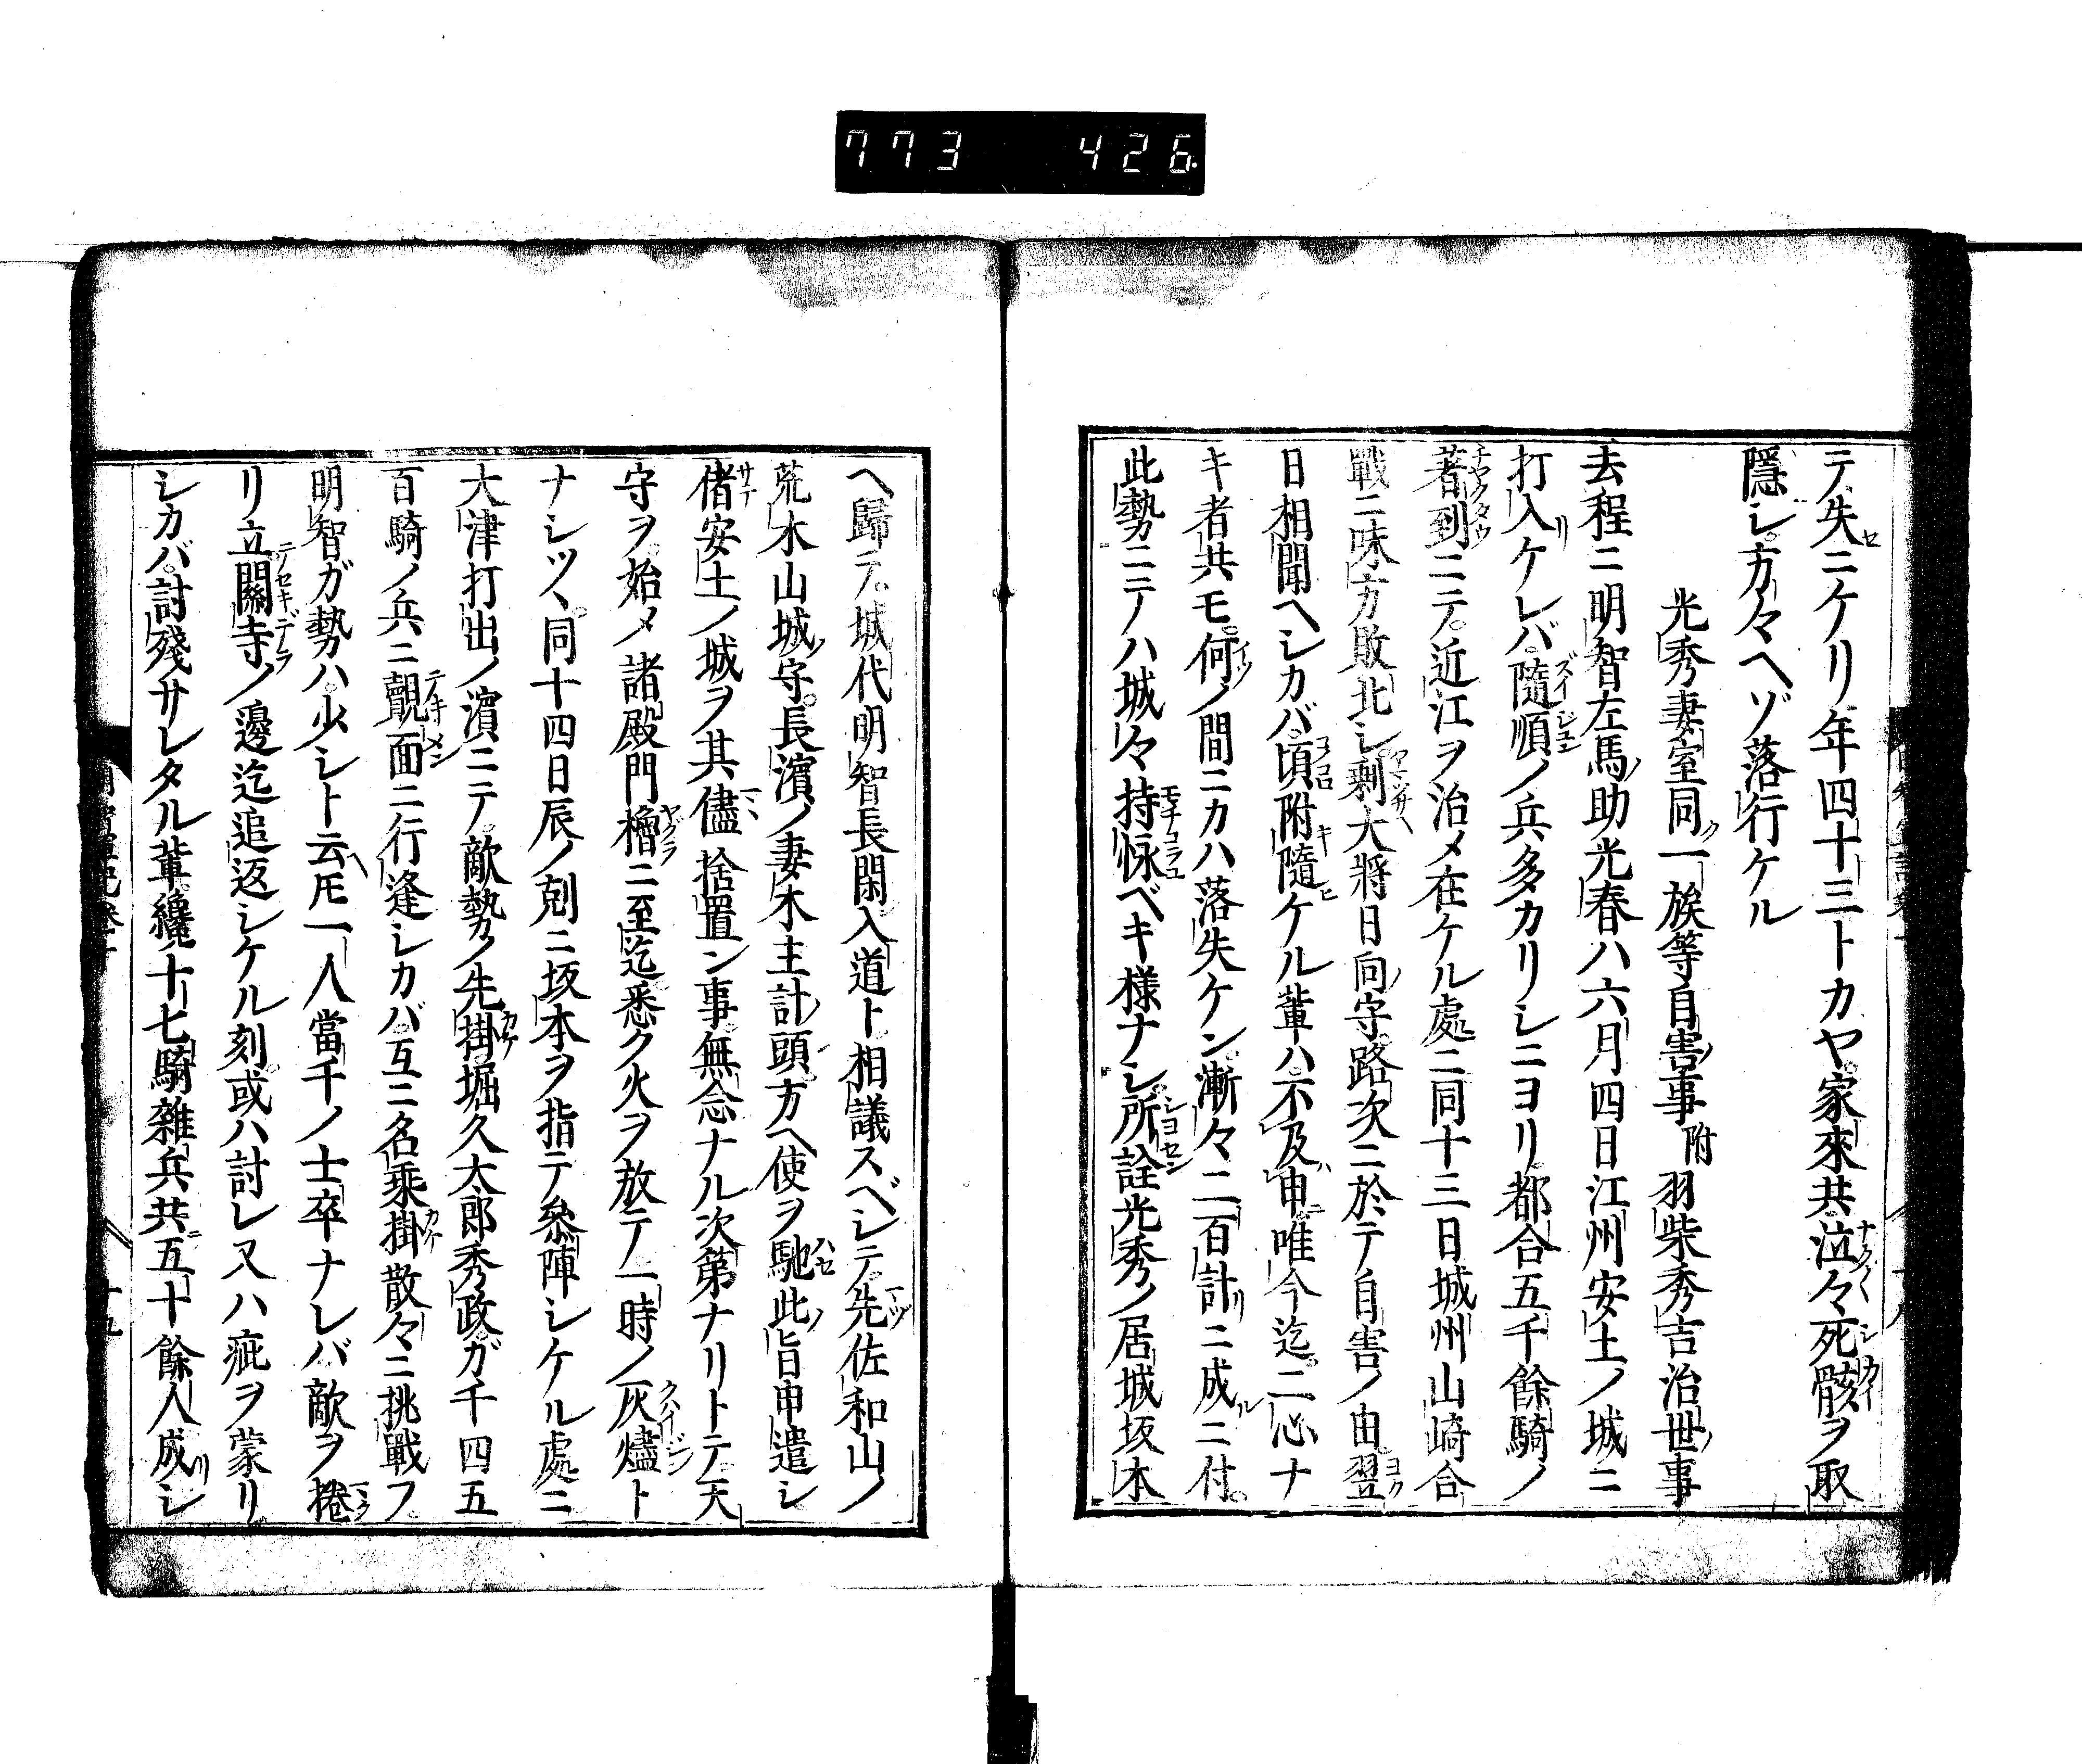 773 426
テ失ニケリ年四十三トカヤ。家來共泣々死骸ヲ取
隱シ。方々ヘゾ落行ケル
光秀妻室同一族等自害事附羽柴秀吉治世事
去程ニ明智左馬助光春ハ六月四日江州安土ノ城ニ
打入ケレバ隨順ノ兵多カリシニヨリ都合五千餘騎ノ
著到ニテ。近江ヲ治メ在ケル處ニ同十三日城州山崎合
戰ニ味方敗北シ。剩大將日向守。路次ニ於テ自害ノ由。翌
日相聞ヘシカバ。頃附隨ケル輩ハ。不及申。唯今迄。二心ナ
キ者共モ。何ノ間ニカハ落失ケン。漸々二百計ニ成ニ付。
此勢ニテノハ城々持怺ベキ樣ナシ。所詮光秀ノ居城坂本
ヘ歸テ。城代明智長閑入道ト。相議スベシテ。先佐和山ノ
荒木山城守。長濱ノ妻木主計頭。方ヘ使ヲ馳此旨申遣シ
偖安土ノ城ヲ其儘捨置ン事。無念ナル次第ナリトテ天
守ヲ始メ諸殿門櫓ニ至迄悉ク火ヲ放テノ一時ノ灰燼ト
ナシツヽ。同十四日辰ノ剋ニ坂本ヲ指テ參陣シケル處ニ
大津打出ノ濱ニテ。敵勢ノ先掛堀久太郎秀政ガ千四五
百騎ノ兵ニ覿面ニ行逢シカバ。互ニ名乘掛散々ニ挑戰フ。
明智ガ勢ハ少シト云𪜈一人當千ノ士卒ナレバ敵ヲ捲
リ立關寺ノ邊迄追返シケル刻。或ハ討レ又ハ疵ヲ蒙リ
シカバ。討殘サレタル輩纔十七騎雜兵共五十餘人成シ